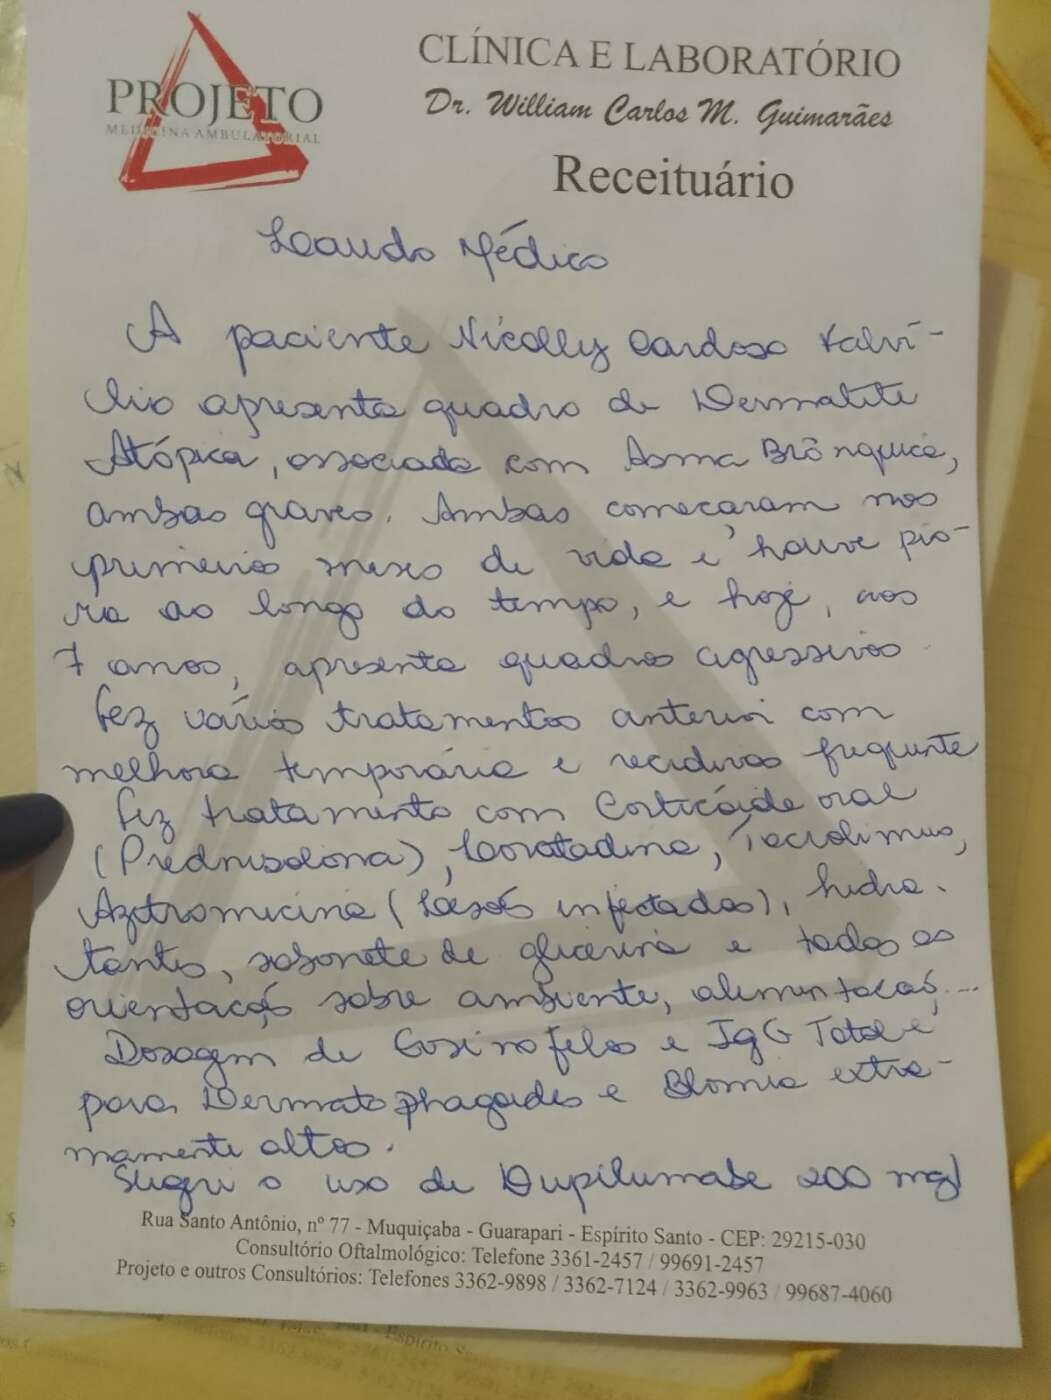 PROJETO
MEDICINA AMBULATORIAL
CLÍNICA E LABORATÓRIO
Dr. William Carlos M. Guimarães
Receituário
Laudo Médico
A paciente Nicolly Cardoso Valvi-
lio apresenta quadro de Dermatite
Atópica, associada com Asma Brônquica,
ambas graves. Ambas comecaram nos
primeiros meses de vida e houve pio-
ra ao longo do tempo, e hoje, aos
7 anos, apresenta quadros agressivos.
Fez vários tratamentos anterior com
melhora temporária e recidivas frequente
Fez tratamento com Corticóide oral
(Prednisolona), Loratadina, Tacrolimus,
Azitromicina (Lesões infectadas), hidra-
tantes, sabonete de glicerina e todas as
orientações sobre ambiente, alimentação, ...
Dosagem de Eosinofilos e IgG Total e
para Dermatophagoides e Blomia extre-
mamente altos.
Sugiro o uso de Dupilumabe 200 mg
Rua Santo Antônio, nº 77 - Muquiçaba - Guarapari - Espírito Santo - CEP: 29215-030
Consultório Oftalmológico: Telefone 3361-2457 / 99691-2457
Projeto e outros Consultórios: Telefones 3362-9898 / 3362-7124 / 3362-9963 / 99687-4060